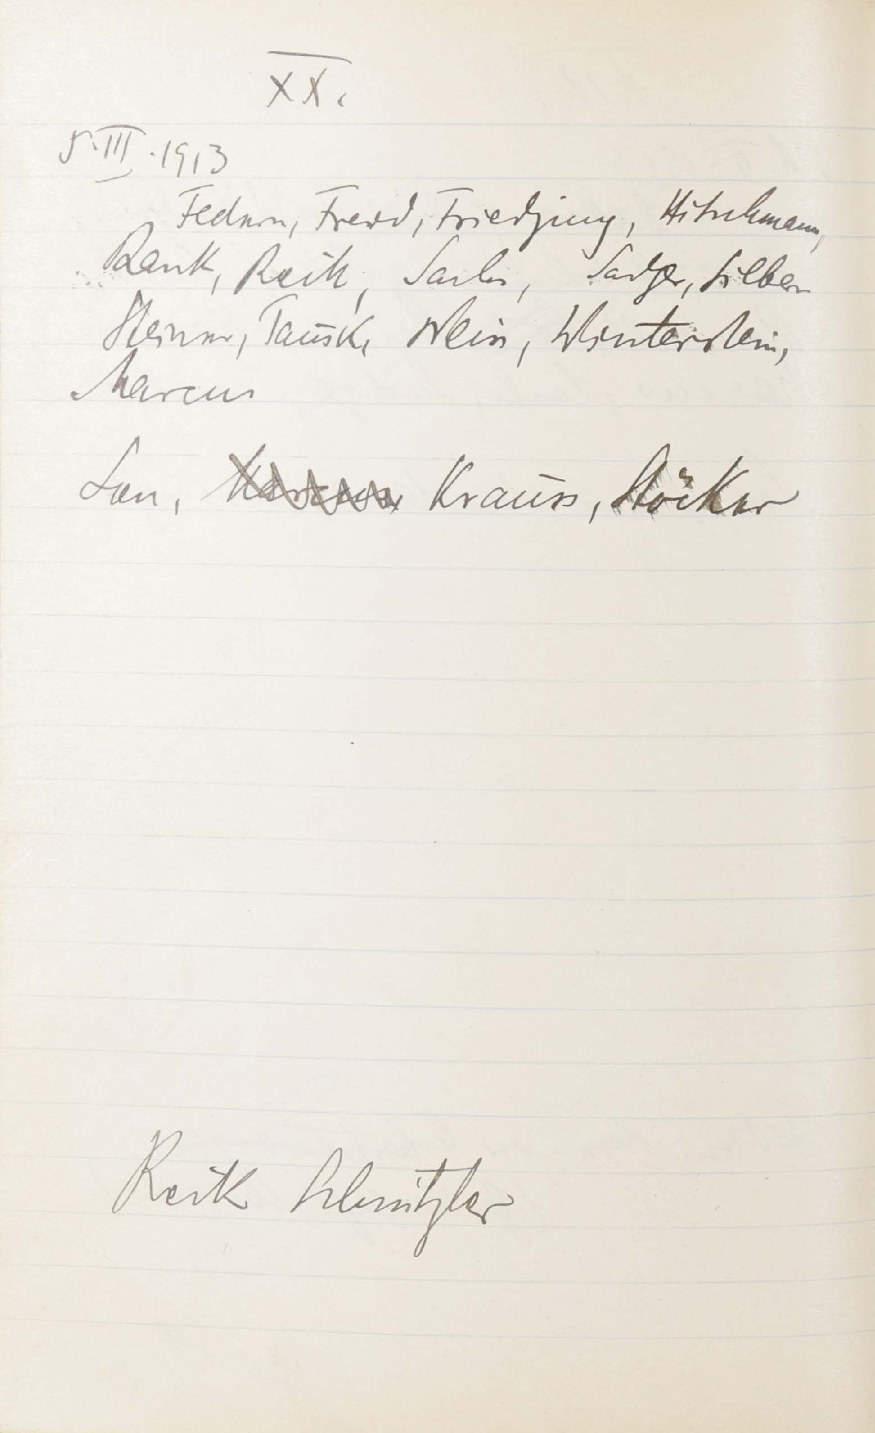 XX.
5.III.1913
Federn, Freud, Friedjung, Hitschmann,
Rank, Reik, Sachs, Sadger, Silber
Steiner, Tausk, Weiss, Winterstein,
Marcus
Lou, Marcus, Krauss, Stöcker
Reik Schnitzler